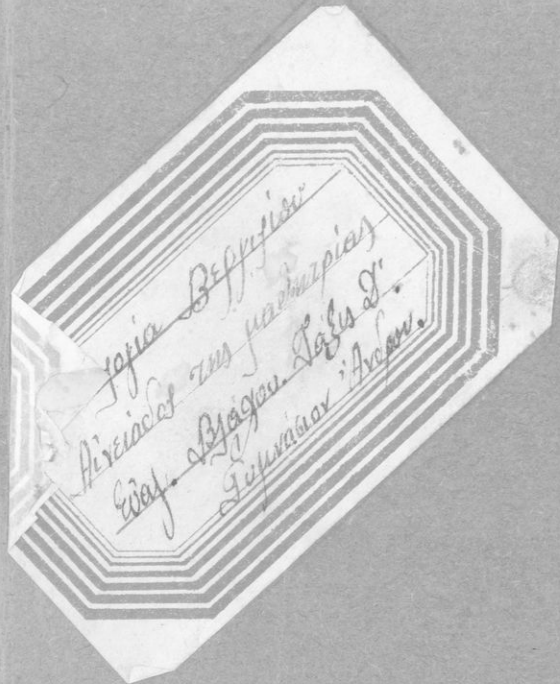 Βεργιλίου
Αἰνειάδος της μαθητρίας
Εὐαγ. Βλάχου. Τάξις Δ'.
Γυμνάσιον Ἄνδρου.